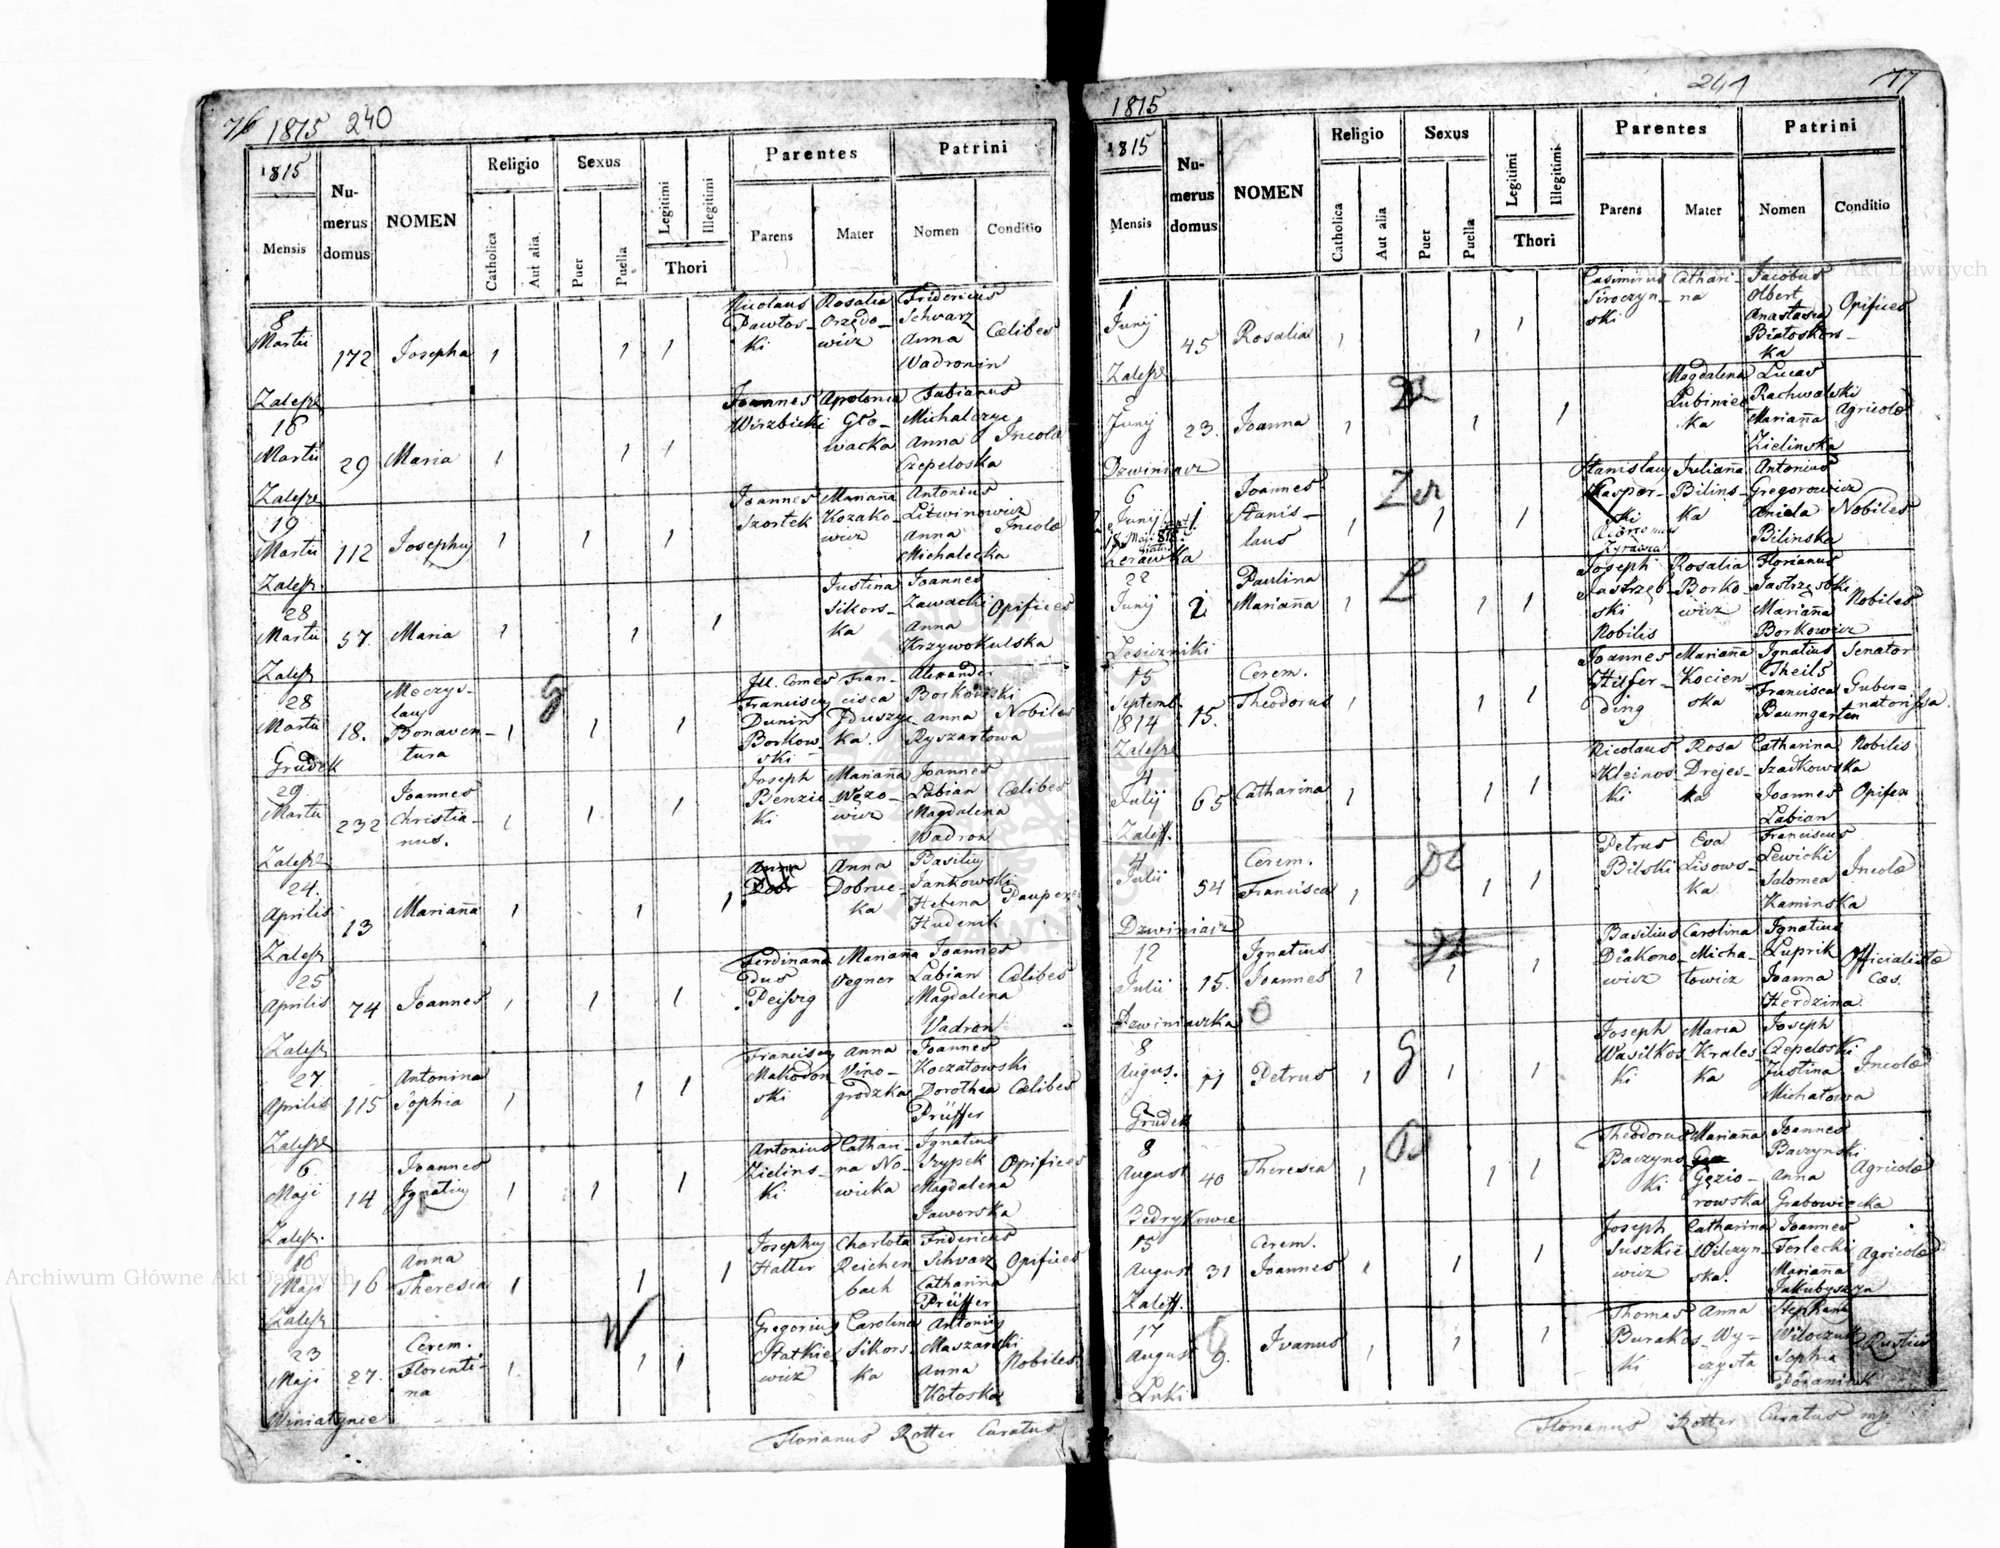 76 1815 240
1815
Mensis
Numerus domus
NOMEN
Religio
Catholica
Aut alia
Sexus
Puer
Puella
Legitimi
Illegitimi
Thori
Parentes
Parens
Mater
Patrini
Nomen
Conditio
8 Martii Zalesz
172
Josepha
Nicolaus Pawłos-ki
Rosalia Orzędo-wicz
Fridericus Schvarz Anna Wadronin
Cælibes
16 Martii Zalesz
29
Maria
Joannes Wirzbicki
Apolonia Gło-wacka
Fabianus Michalczyc Anna Czepeloska
Incolæ
19 Martii Zalesz.
112
Josephus
Joannes Szortek
Marianna Kozako-wicz
Antonius Litwinowicz Anna Michalecka
Incolæ
28 Martii Zalesz
57
Maria
Justina Sikors-ka
Joannes Zawacki Anna Krzywokulska
Opifices
28 Martii Grudek
18.
Meczys-laus Bonaven-tura
G
Ill. Comes Franciscus Dunin Borkow-ski
Fran-cisca Dduszyc-ka.
Alexander Borkowski Anna Ryszartowa
Nobiles
29 Martii Zalesz
232
Joannes Christia-nus.
Joseph Benzic-ki
Marianna Wężo-wicz
Joannes Labian Magdalena Wadron
Cælibes
24. Aprilis Zalesz
13
Marianna
Anna Dobruc-ka
Basilius Jankowski Helena Hudenik
Pauperes
25 Aprilis Zalesz
74
Joannes
Ferdinandus Peiserg
Marianna Vegner
Joannes Labian Magdalena Vadron
Cælibes
27 Aprilis Zalesz
115
Antonina Sophia
Franciscus Makodonski
Anna Vino-grodzka
Joannes Koczatowski Dorothea Prüffer
Cælibes
6 Maji Zalesz.
14
Joannes Ignatius
Antonius Zielins-ki
Catharina No-wicka
Ignatius Szypek Magdalena Jaworska
Opifices
16 Maji Zalesz
16
Anna Theresia
Josephus Halter
Charlota Reichenbach
Fridericus Schvarz Catharina Prüffer
Opifices
23 Maji Winiatynce
27.
Cerem. Florenti-na
W
Gregorius Statkie-wicz
Carolina Sikors-ka
Antonius Maszarski Anna Kołoska
Nobiles
Florianus Rotter Curatus
1815
241
77
1815
Mensis
Numerus domus
NOMEN
Religio
Catholica
Aut alia
Sexus
Puer
Puella
Legitimi
Illegitimi
Thori
Parentes
Parens
Mater
Patrini
Nomen
Conditio
1 Junij Zalesz
45
Rosalia
Casimirus Siroczyn-ski
Cathari-na
Jacobus Olbert Anastasia Białoskors-ka
Opifices
5 Junij Dzwiniacz
23.
Joanna
Dz
Magdalena Lubiniec-ka
Lucas Rachwalski Marianna Zielinska
Agricolæ
6 Junij Zerawka
1.
Joannes Stanis-laus
Zer
Stanislaus Kaspor-ski
Julianna Bilins-ka
Antonius Gregorowicz Aniela Bilinska
Nobiles
22 Junij Lesiczniki
2
Paulina Marianna
L
Joseph Jastrzęb-ski Nobilis
Rosalia Borko-wicz
Florianus Jastrzębski Marianna Borkowicz
Nobiles
15 Septemb. 1814 Zalesz
15.
Cerem. Theodorus
Joannes Hilfer-ding
Marianna Kocien-ska
Ignatius Theils Francisca Baumgarten
Senator Guber-natorissa
4 Julij Zalesz.
65
Catharina
Nicolaus Kleinos-ki
Rosa Drejes-ka
Catharina Szadkowska Joannes Labian
Nobilis Opifex
4 Julii Dzwiniacz
54
Cerem. Francisca
Dz
Petrus Bilski
Eva Lisows-ka
Franciscus Lewicki Salomea Kaminska
Incolæ
12 Julii Dzwiniaczka
15.
Ignatius Joannes
Basilius Diakono-wicz
Carolina Micha-łowicz
Ignatius Luprik Joanna Herdzina
Officialistæ Cæs.
8 Augus. Grudek
11
Petrus
G
Joseph Wasilkos-ki
Maria Krales-ka
Joseph Czepeloski Justina Michałowa
Incolæ
8 August Bedrykowce
40
Theresia
B
Theodorus Baczyns-ki
Marianna Gęzio-rowska
Joannes Baczynski Anna Grabowiecka
Agricolæ
15 August Zalesz.
31
Cerem. Joannes
Joseph Suszkie-wicz
Catharina Wilczyn-ska.
Joannes Terlecki Marianna Jakubyszyn
Agricolæ
17 August Luki
9.
Ivanus
Thomas Burakos-ki
Anna Wy-czysta
Stephanus Sophia
Rustici
Florianus Rotter Curatus mp
Archiwum Główne Akt Dawnych